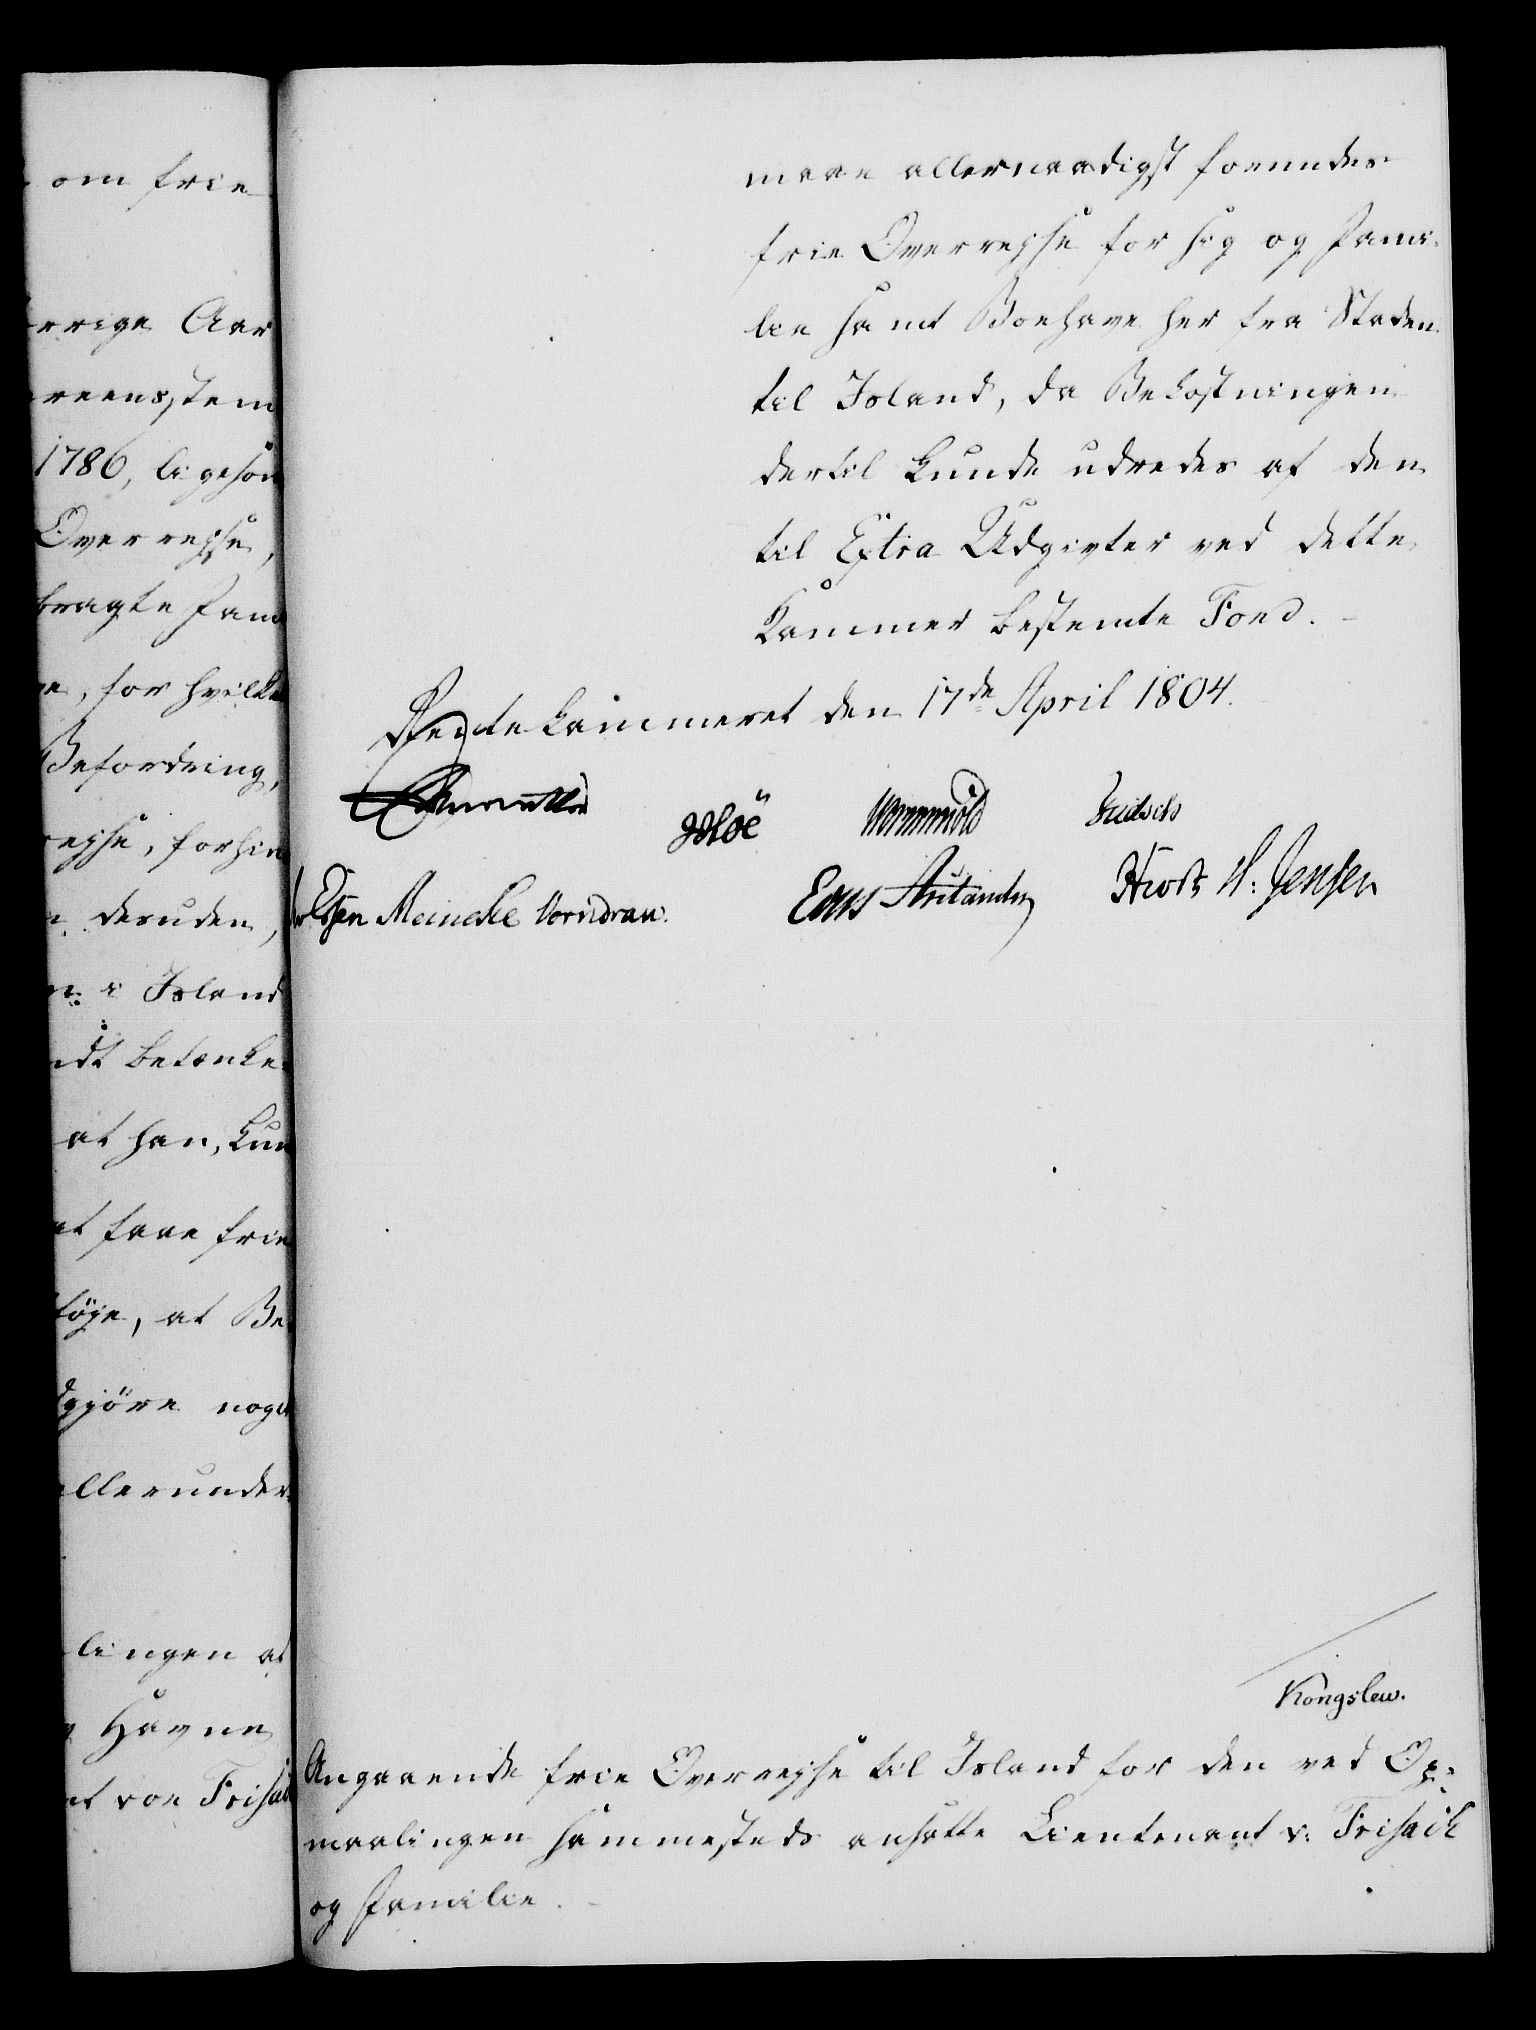 om frie
rrige Aar
reensstem
1786, ligesom
Overrejse,
bragte Fam
e, for hvilke
Befordring,
rejse, forhin
n desuden,
n i Island
ndt betænke
at han, kun
at faae frie
føje, at Be
dgjöre noget
allerunder
lingen af
Havne
nt von Frisak
maae allernaadigst forundes
frie Overrejse for sig og Fami-
lie samt Boehave her fra Staden
til Island, da Bekostningen
dertil kunde udredes af den
til Extra Udgivter ved dette
Kammer bestemte Fond. -
Rentekammeret den 17de April 1804.
Wormskiold
Meincke Vorndran.
Hiort H: Jensen
Kongslew.
Angaaende frie Overrejse til Island for den ved Op-
maalingen sammesteds ansatte Lieutenant v: Frisack
og Familie. -